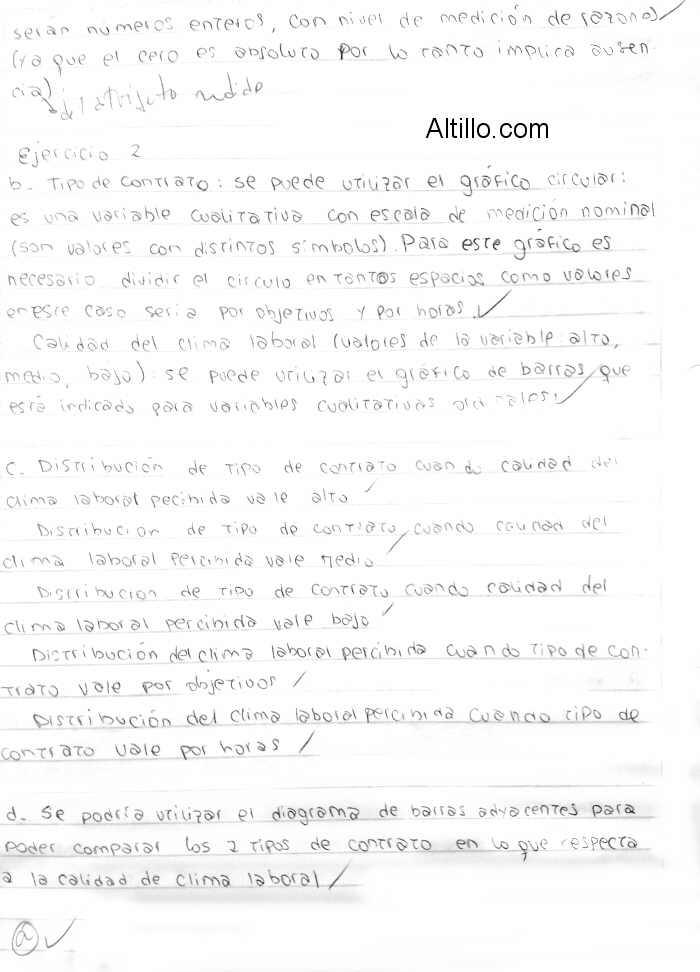 serán números enteros, con nivel de medición de razones
(ya que el cero es absoluto por lo tanto implica ausen
cia)
del atributo medido
Altillo.com
Ejercicio 2
b- Tipo de contrato: se puede utilizar el gráfico circular:
es una variable cualitativa con escala de medición nominal
(son valores con distintos símbolos). Para este gráfico es
necesario dividir el circulo en tantos espacios como valores
en este caso seria por objetivos y por horas.
Calidad del clima laboral (valores de la variable: alto,
medio, bajo): se puede utilizar el gráfico de barras que
está indicado para variables cualitativas ordinales.
c. Distribución de tipo de contrato cuando calidad del
clima laboral pecibida vale alto
Distribucion de tipo de contrato cuando calidad del
clima laboral percibida vale medio
Distribucion de tipo de contrato cuando calidad del
clima laboral percibida vale bajo
Distribución del clima laboral percibida cuando tipo de con-
trato vale por objetivos
Distribución del clima laboral percibida cuando tipo de
contrato vale por horas
d. Se podría utilizar el diagrama de barras adyacentes para
poder comparar los 2 tipos de contrato en lo que respecta
a la calidad de clima laboral
a